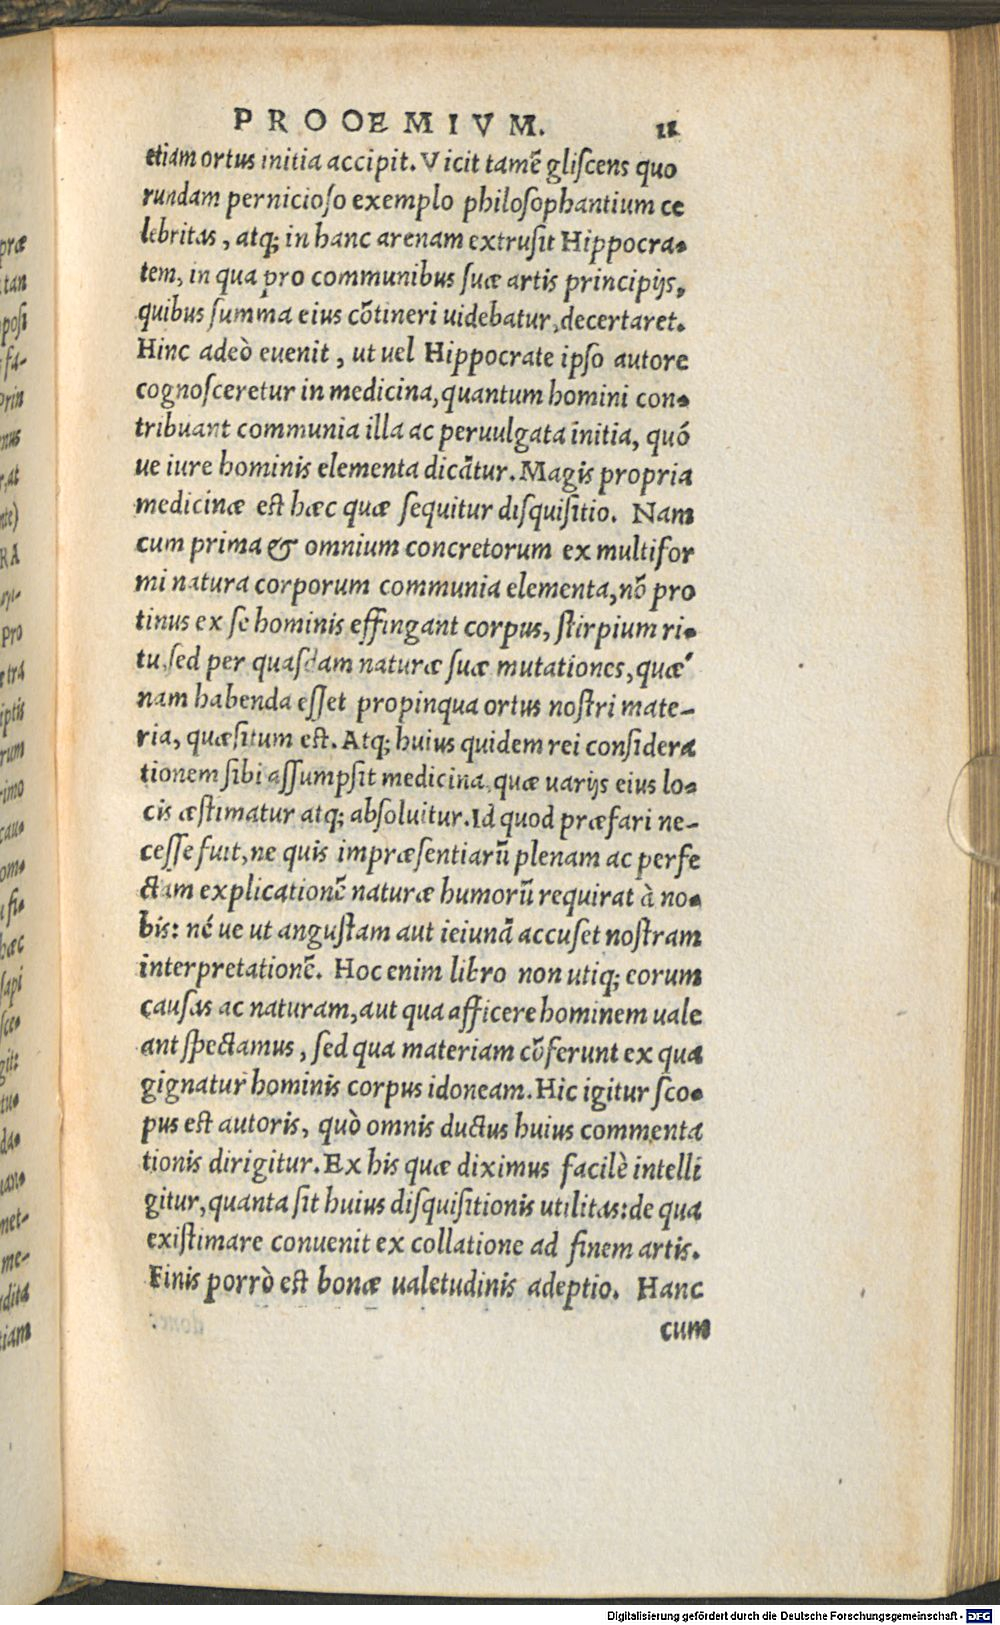 PROOEMIVM. 11
etiam ortus initia accipit. Vicit tamẽ gliſcens quo
rundam pernicioſo exemplo philoſophantium ce
lebritas, atq; in hanc arenam extruſit Hippocra-
tem, in qua pro communibus ſuæ artis principijs,
quibus ſumma eius cõtineri uidebatur, decertaret.
Hinc adeò euenit, ut uel Hippocrate ipſo autore
cognoſceretur in medicina, quantum homini con-
tribuant communia illa ac peruulgata initia, quó
ue iure hominis elementa dicãtur. Magis propria
medicinæ eſt hæc quæ ſequitur diſquiſitio. Nam
cum prima & omnium concretorum ex multifor
mi natura corporum communia elementa, nõ pro
tinus ex ſe hominis effingant corpus, ſtirpium ri-
tu, ſed per quaſdam naturæ ſuæ mutationes, quæ
nam habenda eſſet propinqua ortus noſtri mate-
ria, quæſitum eſt. Atq; huius quidem rei conſidera
tionem ſibi aſſumpſit medicina, quæ uarijs eius lo-
cis æſtimatur atq; abſoluitur. Id quod præfari ne-
ceſſe fuit, ne quis impræſentiarũ plenam ac perfe
ctam explicationẽ naturæ humorũ requirat à no-
bis: né ue ut anguſtam aut ieiunã accuſet noſtram
interpretationẽ. Hoc enim libro non utiq; eorum
cauſas ac naturam, aut qua afficere hominem uale
ant ſpectamus, ſed qua materiam cõferunt ex qua
gignatur hominis corpus idoneam. Hic igitur ſco-
pus eſt autoris, quò omnis ductus huius commenta
tionis dirigitur. Ex his quæ diximus facilè intelli
gitur, quanta ſit huius diſquiſitionis utilitas: de qua
exiſtimare conuenit ex collatione ad finem artis.
Finis porrò eſt bonæ ualetudinis adeptio. Hanc
cum
præ
tan
poſi
fa-
Prin
nus
r, at
nte)
RA
pro
etrá
iptis
rum
rimo
cau-
om-
fi-
hæc
ſapi
ſce-
git:
tu-
da-
net-
me-
dita
tiam
Digitalisierung gefördert durch die Deutsche Forschungsgemeinschaft - DFG